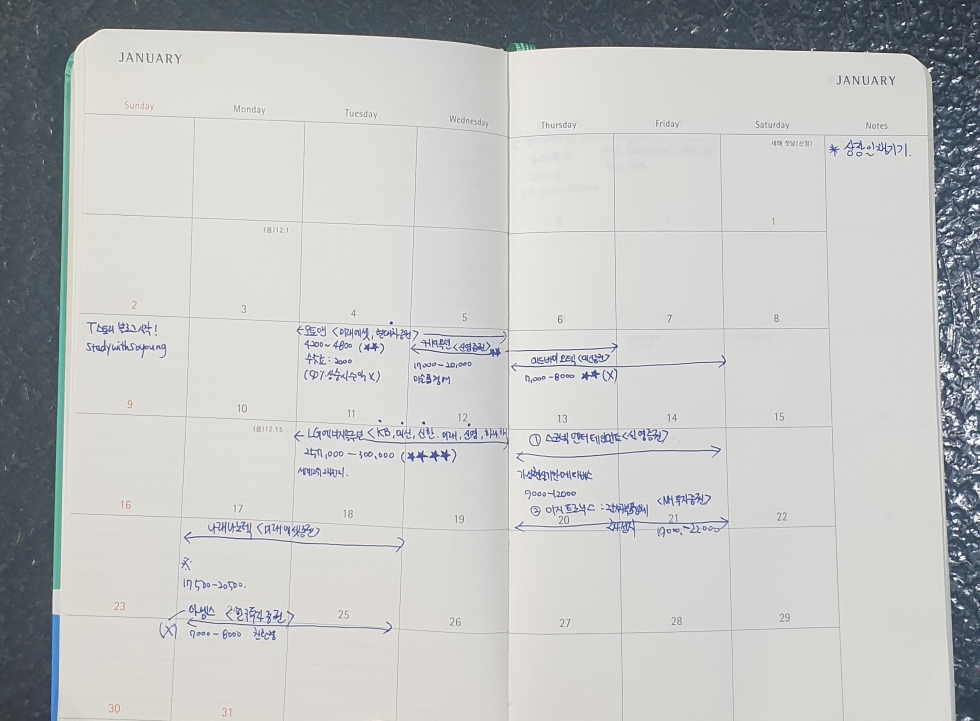 JANUARY
JANUARY
Sunday Monday Tuesday Wednesday Thursday Friday Saturday Notes
새해 첫날(신정)
* 상장일 챙기기.
1
(음)12.1
2 3 4 5 6 7 8
T스토리 블로그 시작!
study with soyoung
오토앤 <미래에셋, 현대차증권>
4200~4800 (★★)
수수료 : 2000
(SD? 상승시 수익 X)
케이옥션 <신영증권> ★★
17000-20,000
미술품 경매
애드바이오텍 <대신증권>
7,000-8000 ★★ (X)
9 10 11 12 13 14 15
(음)12.15
LG에너지솔루션 <KB, 대신, 신한. 미래, 신영, 하나
257,000-300,000 (★★★★)
세계2위 2차전지.
① 스코넥엔터테인먼트 <신영증권>
가상현실기반 메타버스
9000-12000
② 이지트로닉스 : <NH투자증권>
19000.-22000
16 17 18 19 20 21 22
나래나노텍 <미래에셋증권>
17,500-20500.
23 25 26 27 28 29
아셈스 <한국투자증권>
(X) 7000-8000 친환경
30 31